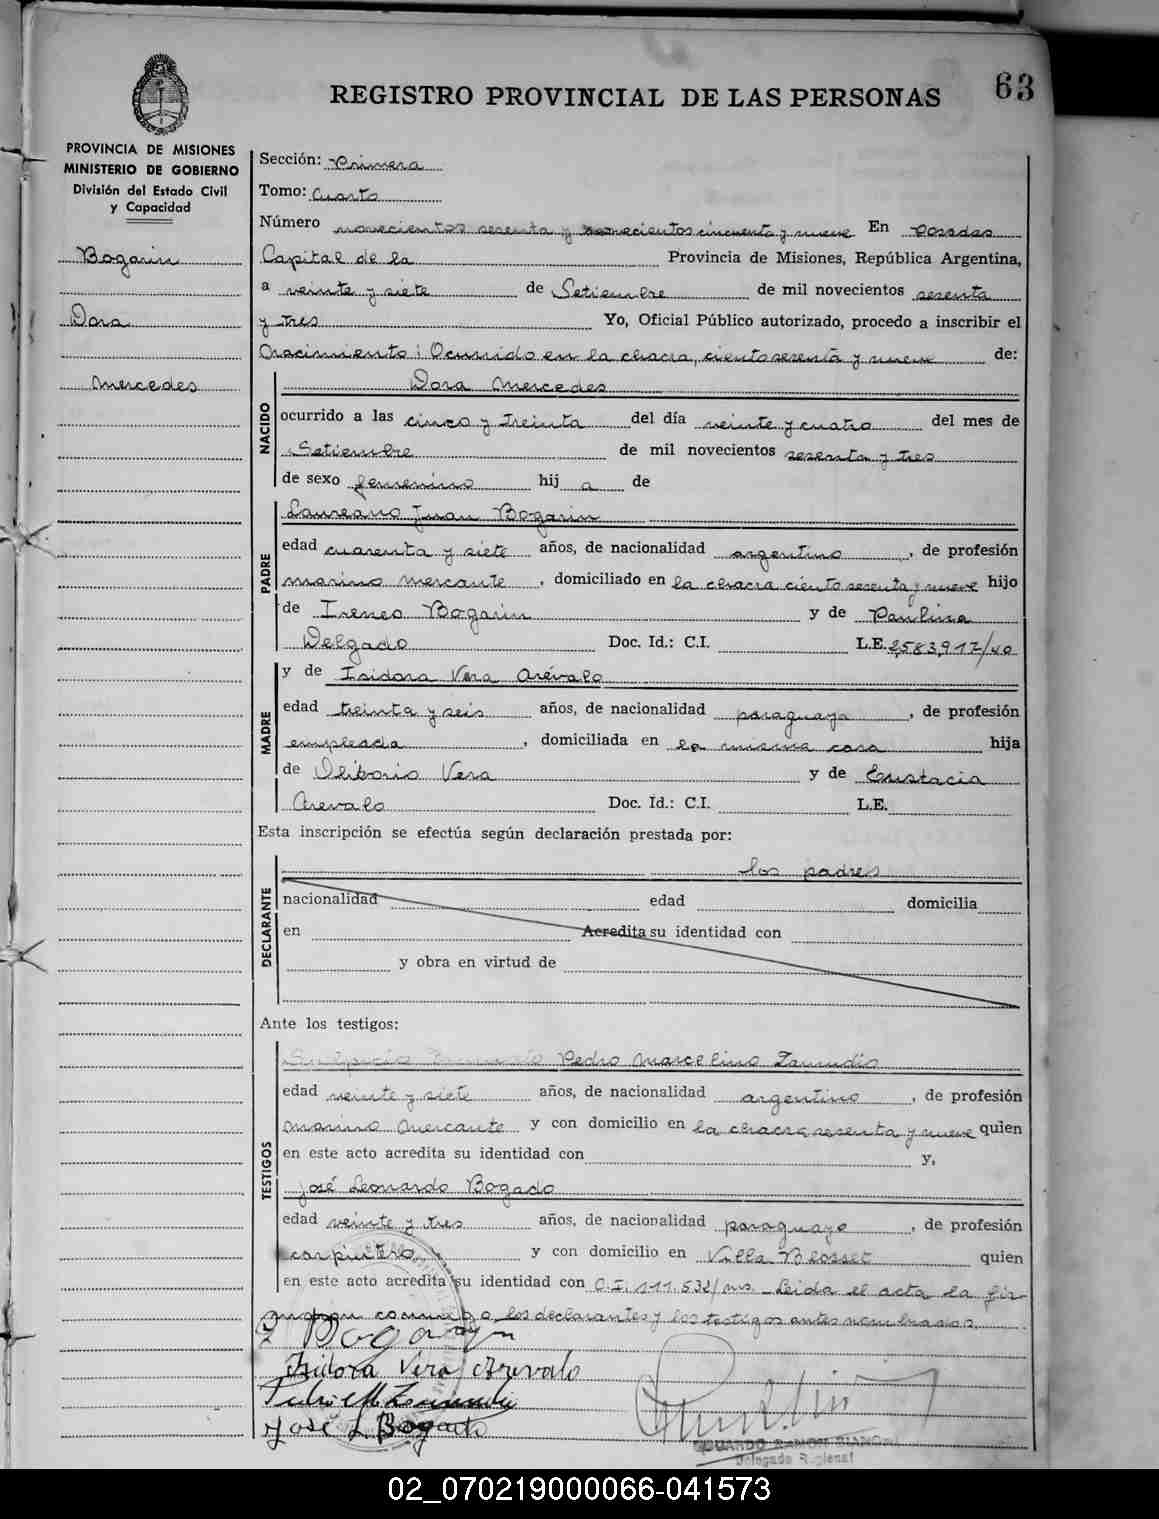 63
REGISTRO PROVINCIAL DE LAS PERSONAS
PROVINCIA DE MISIONES
MINISTERIO DE GOBIERNO
División del Estado Civil
y Capacidad
Bogarin
Dora
Mercedes
Sección: Primera
Tomo: Cuarto
Número novecientos sesenta y novecientos cincuenta y nueve En Posadas
Capital de la Provincia de Misiones, República Argentina,
a veinte y siete de Setiembre de mil novecientos sesenta
y tres Yo, Oficial Público autorizado, procedo a inscribir el
Nacimiento: Ocurrido en la chacra, ciento sesenta y nueve de:
Dora Mercedes
NACIDO
ocurrido a las cinco y treinta del día veinte y cuatro del mes de
Setiembre de mil novecientos sesenta y tres
de sexo femenino hij a de
PADRE
Laureano Juan Bogarin
edad cuarenta y siete años, de nacionalidad argentino, de profesión
marino mercante, domiciliado en la chacra ciento sesenta y nueve hijo
de Ireneo Bogarin y de Paulina
Delgado Doc. Id.: C.I. L.E. 2,583,917/40
MADRE
y de Isidora Vera Arévalo
edad treinta y seis años, de nacionalidad paraguaya, de profesión
empleada, domiciliada en la misma casa hija
de Oliborio Vera y de Eustacia
Arevalo Doc. Id.: C.I. L.E.
Esta inscripción se efectúa según declaración prestada por:
DECLARANTE
los padres
nacionalidad edad domicilia
en Acredita su identidad con
y obra en virtud de
Ante los testigos:
TESTIGOS
Pedro Marcelino Zamudio
edad veinte y siete años, de nacionalidad argentino, de profesión
marino mercante y con domicilio en la chacra sesenta y nueve quien
en este acto acredita su identidad con y,
José Leonardo Bogado
edad veinte y tres años, de nacionalidad paraguayo, de profesión
carpintero y con domicilio en Villa Blosset quien
en este acto acredita su identidad con C.I. 111.532/ms. Leida el acta la fir-
man conmigo los declarantes y los testigos antes nombrados.
Bogarin
Isidora Vera Arevalo
Pedro M. Zamudio
José L. Bogado
EDUARDO RAMON BIANCHI
Delegado Regional
02_070219000066-041573